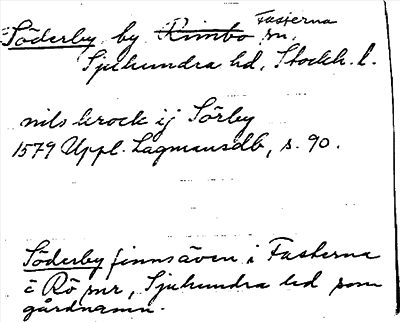 Fasterna
Söderby by Rimbo sn,
Sjuhundra hd, Stockh. l.
nils krock ij Sörby
1579 Uppl. Lagmansdb, s. 90.
Söderby finns även i Fasterna
o Rö snr, Sjuhundra hd som
gårdnamn.